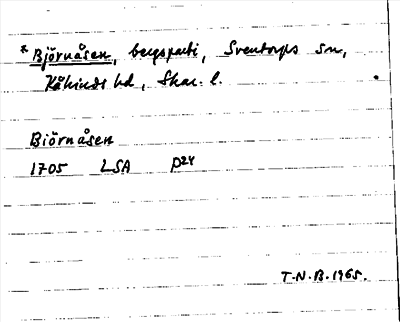 * Björnåsen, bergsparti, Sventorps sn,
Kåkinds hd, Skar. l.
Biörnåsen
1705 LSA P24
T.N.B. 1965.